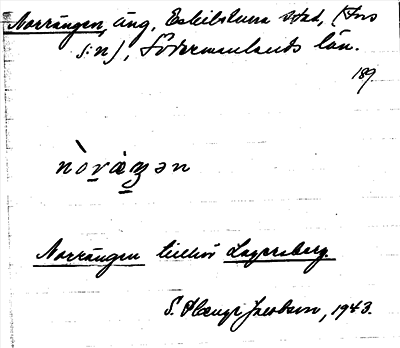 Norrängen, äng, Eskilstuna stad, (Fors
s:n), Södermanlands län.
189
nòräŋən
Norrängen tillhör Lagersberg.
S. Jacobson, 1943.